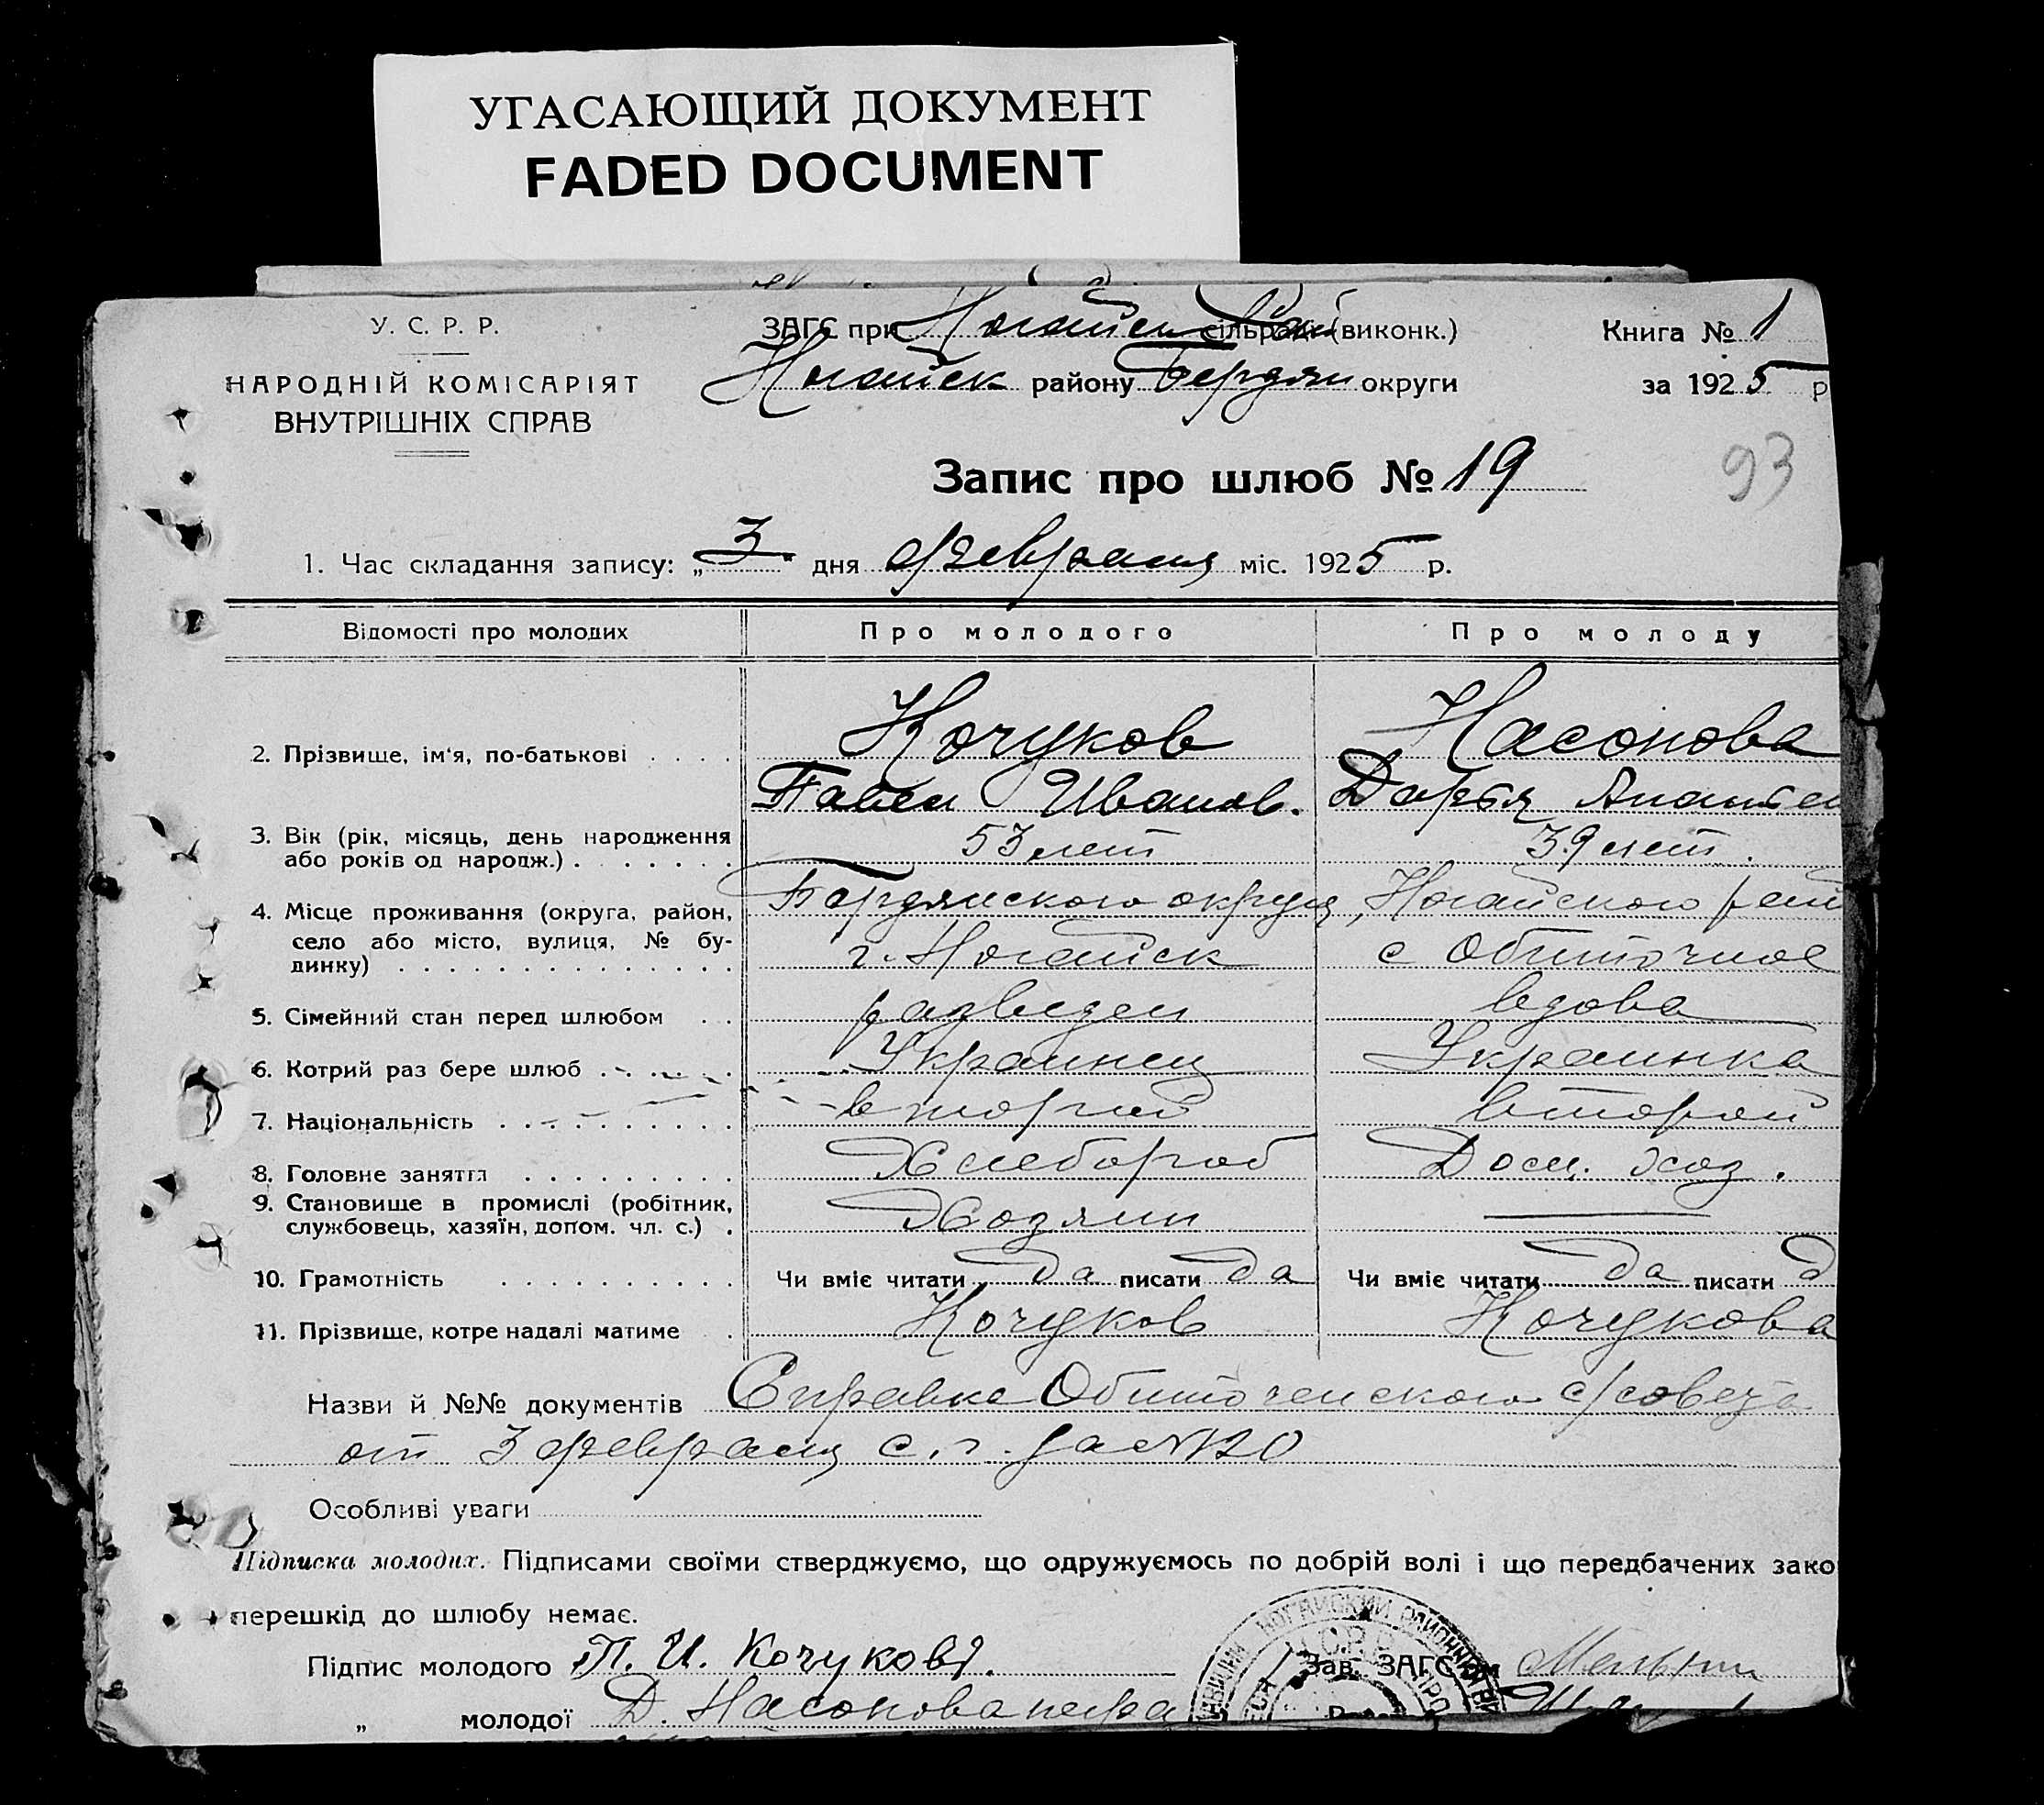 УГАСАЮЩИЙ ДОКУМЕНТ
FADED DOCUMENT
У. С. Р. Р.
НАРОДНІЙ КОМІСАРІЯТ
ВНУТРІШНІХ СПРАВ
ЗАГС при Ногайск сільраді (виконк.)
Ногайск району Бердян округи
Книга № 1
за 1925 р
93
Запис про шлюб № 19
1. Час складання запису: „3" дня февраля міс. 1925 р.
Відомості про молодих Про молодого Про молоду
2. Прізвище, ім'я, по-батькові Кочуков Насонова
Павел Иванов. Дарья
3. Вік (рік, місяць, день народження
або років од народж.) 53 лет 39 лет.
4. Місце проживання (округа, район, Бердянского округа, Ногайского рай
село або місто, вулиця, № бу-
динку) г. Ногайск с Обиточное
5. Сімейний стан перед шлюбом разведен вдова
6. Котрий раз бере шлюб Украинец Украинка
7. Національність второй второй
8. Головне заняття Хлебороб Дом. хоз.
9. Становище в промислі (робітник,
службовець, хазяїн, допом. чл. с.) Хозяин —
10. Грамотність Чи вміє читати да писати да Чи вміє читати да писати д
11. Прізвище, котре надалі матиме Кочуков Кочукова
Назви й №№ документів Справка Обиточенского с/совета
от 3 февраля с. г. за № 120
Особливі уваги
Підписка молодих. Підписами своїми стверджуємо, що одружуємось по добрій волі і що передбачених зако
перешкід до шлюбу немає.
Підпис молодого П. И. Кочуковъ. Зав. ЗАГС'ом
„ молодої Д. Насонова